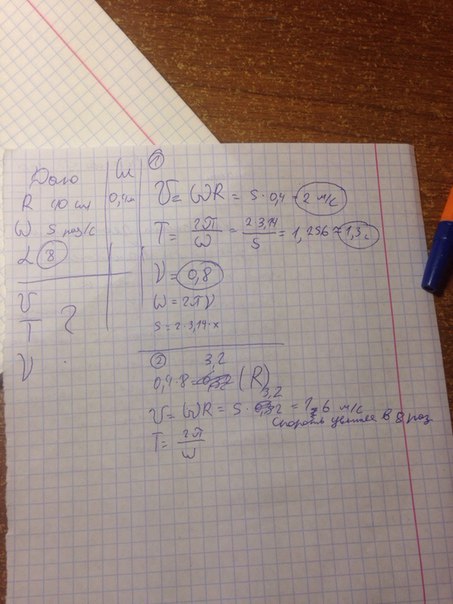 Дано
R 40 см
ω 5 раз/с
L 8
υ
T ?
ν
Си
0,4м
①
υ = ωR = 5 · 0,4 = 2 м/с
T = 2π/ω = 2·3,14/5 = 1,256 ≈ 1,3 с
ν = 0,8
ω = 2πν
5 = 2·3,14·x
②
3,2
0,4 8 = (R)
3,2
υ = ωR = 5 · = 16 м/с
Скорость увелич в 8 раз
T = 2π/ω